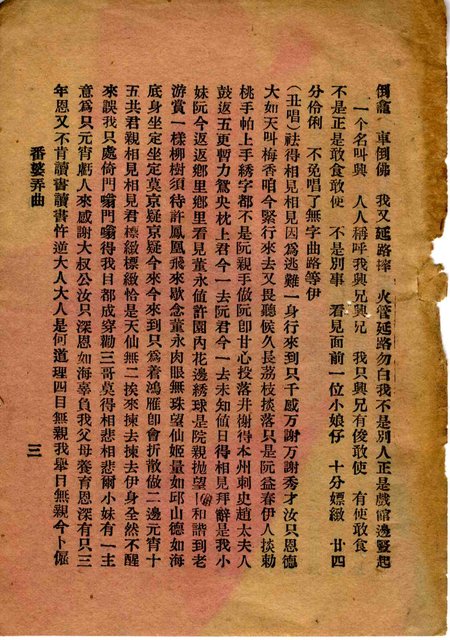 倒龕 車倒佛 我又延路滓 火管延路勿白我不是別人正是戲館邊豎起
一个名叫興 人人稱呼我興兄興兄 我只興兄有俊敢使 有使敢食
不是正是敢食敢使 不是別事 看見面前一位小娘仔 十分嫖緻 廿四
分伶俐 不免唱了無字曲路等伊
(丑唱)祛得相見相見因為逃難一身行來到只千感万謝万謝秀才汝只恩德
大如天叫梅香咱今緊行來去又畏聽候久長荔枝掞落只是阮益春伊人掞勅
桃手帕上手綉字都不是阮親手做阮卽甘心投落井謝得本州刺史趙太夫人
鼓返五更暫力鴛央枕上君今一去阮君今一去未知値日得相見拜辭是我小
妹阮今返返鄉里鄉里看見董永値許園內花邊綉球是院親抛望和諧到老
游賞一樣柳樹須待許鳳凰飛來歇念董永肉眼無珠望仙姬量如邱山德如海
底身坐定坐定莫京疑京疑今來今來到只為着鴻雁卽會折散做二邊元宵十
五共君親相見相見君標緻標緻恰是天仙無二挨來揀去揀去伊身全然不醒
來誤我只處倚門嗡門嗡得我目都成穿勸三哥莫得相悲相悲爾小妹有一主
意為只元宵虧人來感謝大叔公汝只深恩如海辜負我父母養育恩深有只三
年恩又不肯讀書讀書忤逆大人大人是何道理四目無親我舉目無親今卜偃
番婆弄曲
三